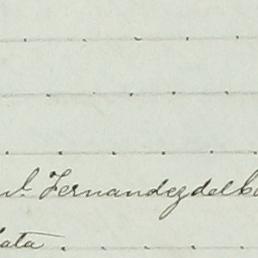 Fernandez del
ata